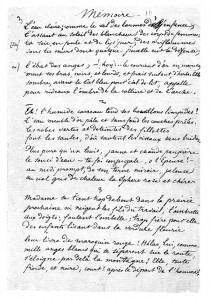 Mémoire
L'eau claire; comme le sel des larmes d'enfance,
L'assaut au soleil des blancheurs des corps de femmes;
la soie, en foule et de lys pur, des oriflammes
sous les murs dont quelque pucelle eut la défense;
l'ébat des anges; — Non... le courant d'or en marche,
meut ses bras, noirs, et lourds, et frais surtout, d'herbe. Elle
sombre, ayant le Ciel bleu pour ciel-de-lit, appelle
pour rideaux l'ombre de la colline et de l'arche.
2
Eh! l'humide carreau tend ses bouillons limpides!
L'eau meuble d'or pâle et sans fond les couches prêtes.
Les robes vertes et déteintes des fillettes
font les saules, d'où sautent les oiseaux sans brides.
Plus pure qu'un louis, jaune et chaude paupière
le souci d'eau — ta foi conjugale, ô l'Épouse! —
au midi prompt, de son terne miroir, jalouse
au ciel gris de chaleur la Sphère rose et chère.
3
Madame se tient trop debout dans la prairie
prochaine où neigent les fils du travail; l'ombrelle
aux doigts; foulant l'ombelle; trop fière pour elle
des enfants lisant dans la verdure fleurie
leur livre de maroquin rouge! Hélas, Lui, comme
mille anges blancs qui se séparent sur la route,
s'éloigne par delà la montagne! Elle, toute
froide, et noire, court! après le départ de l'homme!